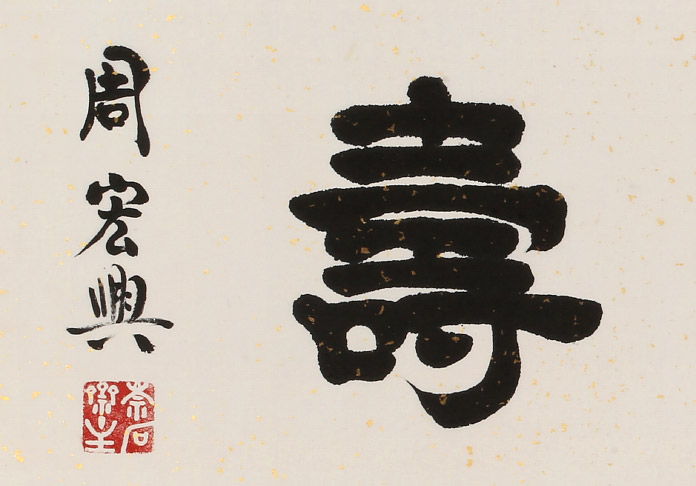 壽
周宏興